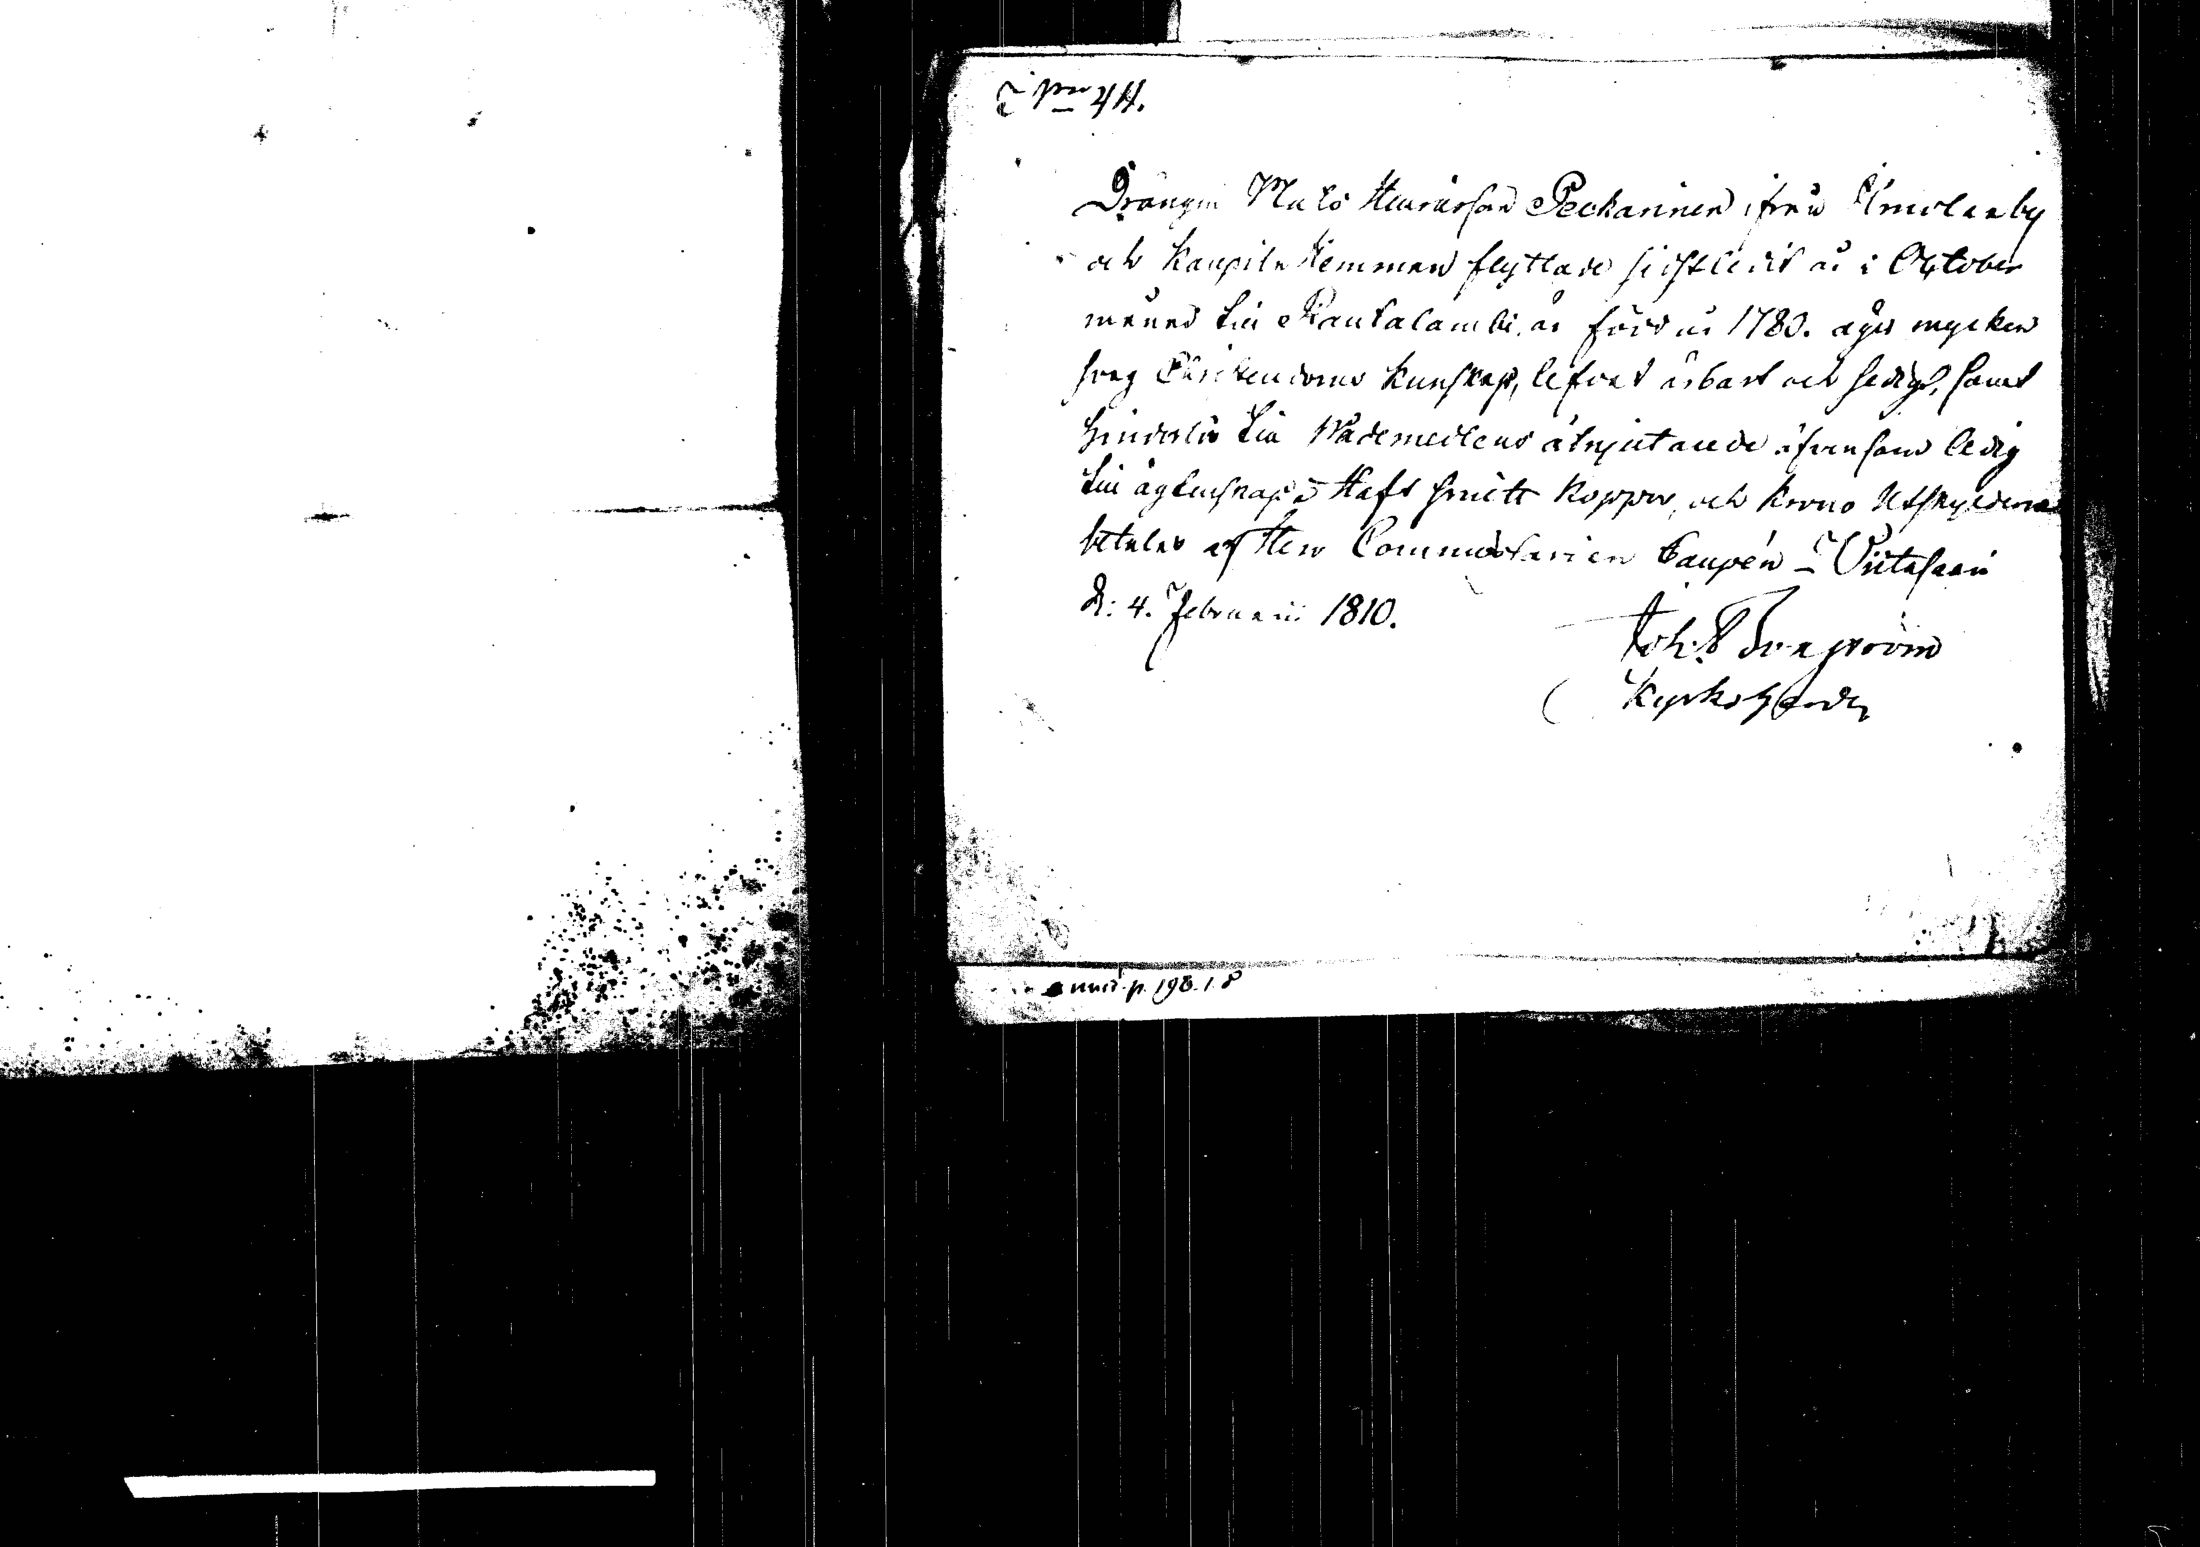 N:o 44.
Drängen Mats Henricsson Peckarinen ifrån Kimolanby
och Kaupila Hemman flyttade sidstledit år i October
månad till Rautalambi, är född år 1780. äger mycken
svag Christendoms kunskap, lefvat ärbart och sedigt, samt
hinderlös till Nådemedlens åtnjutande äfvensom ledig
till ägtenskap, Haft smitt koppor, och Krono Utskylderna
betalas af Herr Commissarien Taupén – Viitasaari
d: 4. Februarii 1810.
Joh:
Kyrkoherde
p. 198. 1. 8